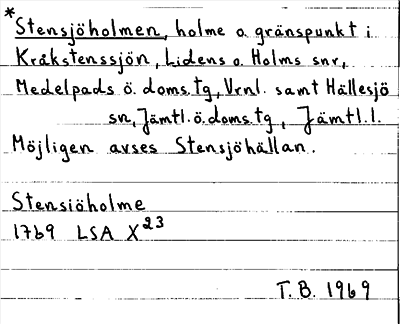 *Stensjöholmen, holme o. gränspunkt i
Kråkstenssjön, Lidens o. Holms snr,
Medelpads ö. doms. tg, Vrnl. samt Hällesjö
sn, Jämtl. ö. doms. tg, Jämtl. l.
Möjligen avses Stensjöhällan.
Stensiöholme
1769 LSA X23
T. B. 1969